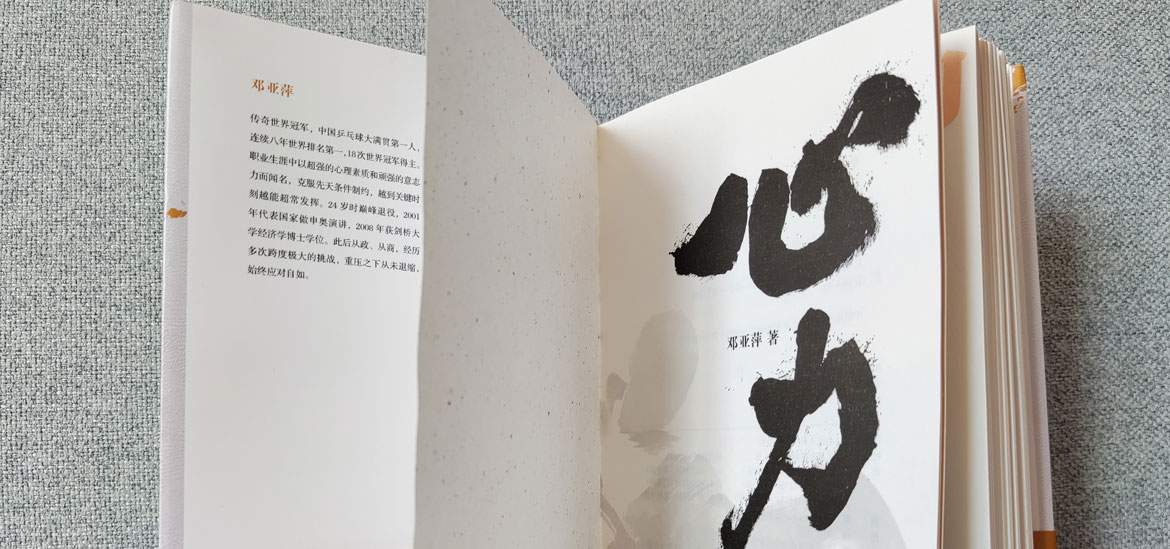 邓亚萍
传奇世界冠军，中国乒乓球大满贯第一人，
连续八年世界排名第一，18次世界冠军得主。
职业生涯中以超强的心理素质和顽强的意志
力而闻名，克服先天条件制约，越到关键时
刻越能超常发挥。24 岁时巅峰退役，2001
年代表国家做申奥演讲，2008 年获剑桥大
学经济学博士学位。此后从政、从商，经历
多次跨度极大的挑战，重压之下从未退缩，
始终应对自如。
心
力
邓亚萍 著